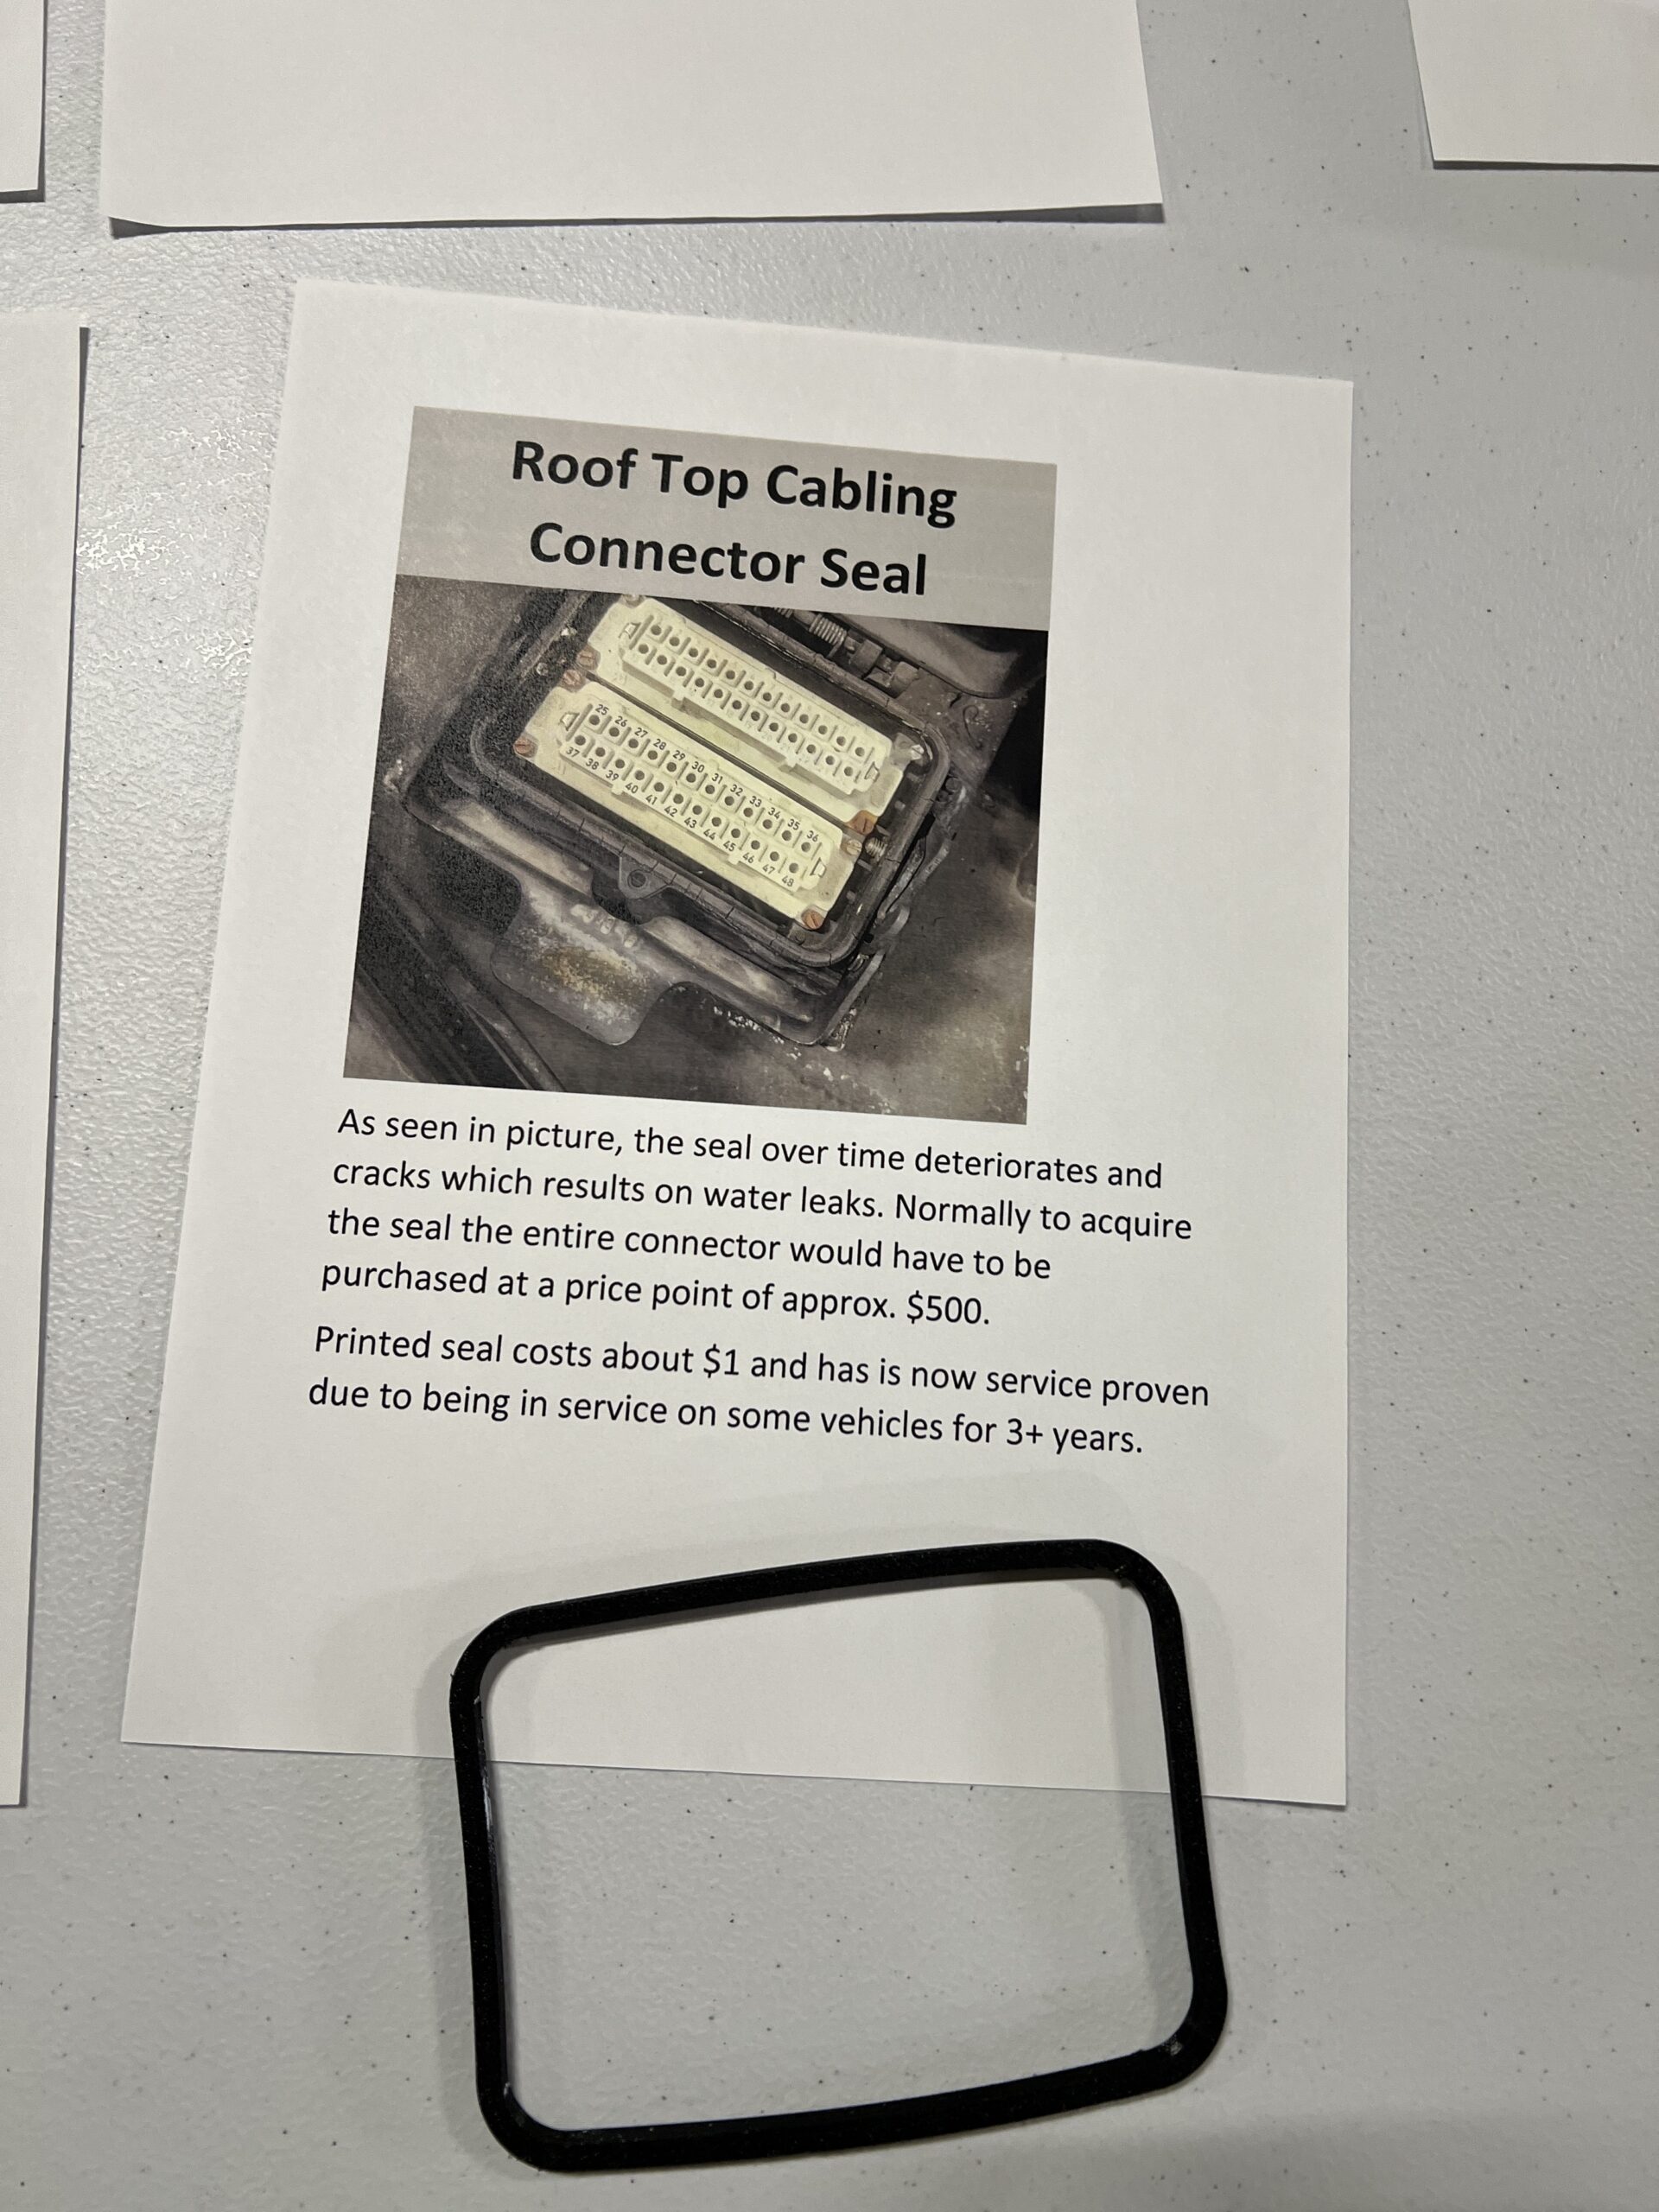 Roof Top Cabling
Connector Seal
25 26 27 28 29 30 31 32 33 34 35 36
37 38 39 40 41 42 43 44 45 46 47 48
As seen in picture, the seal over time deteriorates and
cracks which results on water leaks. Normally to acquire
the seal the entire connector would have to be
purchased at a price point of approx. $500.
Printed seal costs about $1 and has is now service proven
due to being in service on some vehicles for 3+ years.